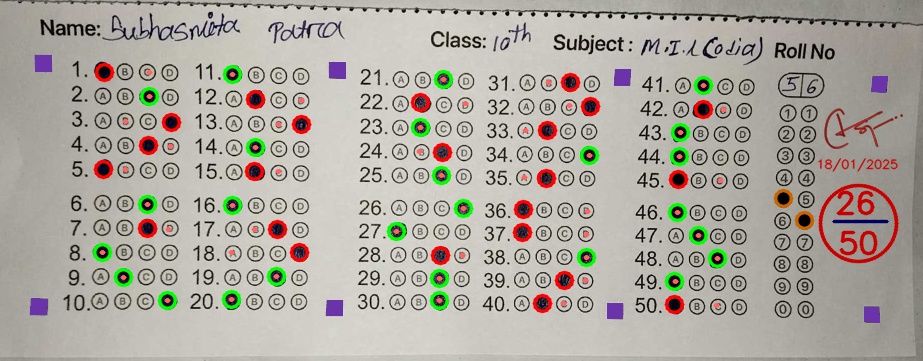 Name: Subhasmita Patra
Class: 10th Subject: M.I.L (Odia) Roll No
56
1. A B C D
2. A B C D
3. A B C D
4. A B C D
5. A B C D
6. A B C D
7. A B C D
8. A B C D
9. A B C D
10. A B C D
11. A B C D
12. A B C D
13. A B C D
14. A B C D
15. A B C D
16. A B C D
17. A B C D
18. A B C D
19. A B C D
20. A B C D
21. A B C D
22. A B C D
23. A B C D
24. A B C D
25. A B C D
26. A B C D
27. A B C D
28. A B C D
29. A B C D
30. A B C D
31. A B C D
32. A B C D
33. A B C D
34. A B C D
35. A B C D
36. A B C D
37. A B C D
38. A B C D
39. A B C D
40. A B C D
41. A B C D
42. A B C D
43. A B C D
44. A B C D
45. A B C D
46. A B C D
47. A B C D
48. A B C D
49. A B C D
50. A B C D
1 1
2 2
3 3
4 4
5
6
7 7
8 8
9 9
0 0
18/01/2025
26
50